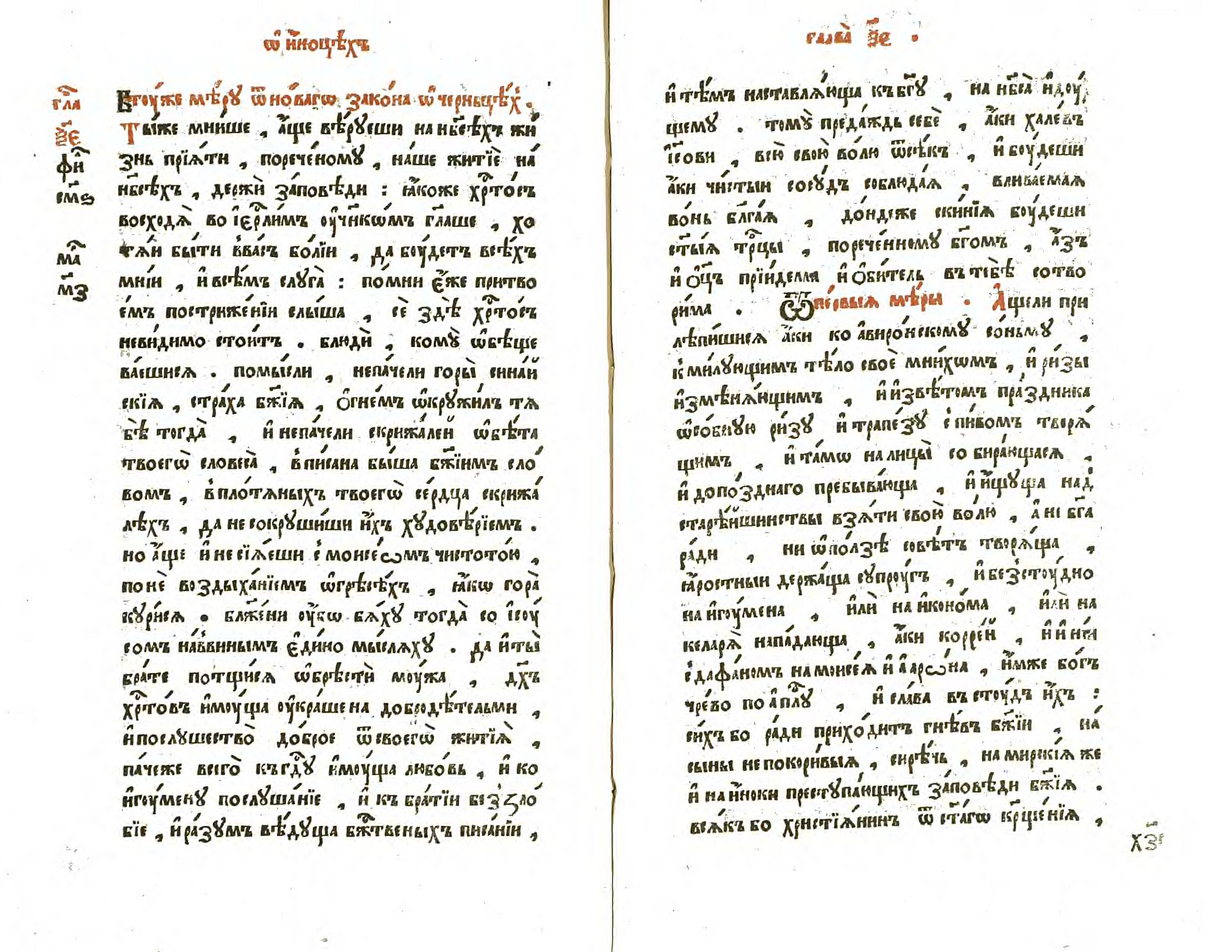 ѡ҆ и҆ноцѣхъ
гла҃
Втоу́же мѣ́ру ѿ но́вагѡ зако́на ѡ҆ черньцѣ́хъ.
Ты́же мнише , а҆́ще вѣ́руеши на нб҃сѣхъ жи́
фи҃
знь прїѧ́ти , порече́ному , на́ше житїѐ на́
нб҃сѣхъ , держѝ за́повѣди : ꙗ҆́коже хрⷭ҇то́съ
восходѧ̀ во і҆ерⷭ҇ли́мъ оу҆ченикѡ́мъ гл҃аше , хо
тѧ́и бы́ти в ва́съ бо́лїи , да боу́детъ всѣ́хъ
ма҃
мні́и , и҆ всѣ́мъ слуга̀ : помни є҆́же притво
м҃з
е́мъ пострижені́и слы́ша , сѐ здѣ̀ хрⷭ҇то́съ
неви́димо стои́тъ . блюдѝ , кому̀ ѡ҆бѣще
ва́ешисѧ . помы́сли , непа́чели горы̀ сина́й
скїѧ , стра́ха бж҃їѧ , о҆гне́мъ ѡ҆кружи́лъ тѧ
бѣ̀ тогда̀ , и҆ непа́чели скрижа́лей ѡ҆бѣ́та
твоегѡ̀ словеса̀ , впи́сана бы́ша бж҃їимъ сло́
вомъ , в плотѧ́ныхъ твоегѡ̀ се́рдца скрижа́
лѣхъ , да не сокруши́ши и҆́хъ худовѣ́рїемъ .
но а҆́ще и҆ не сїѧ́еши с моисе́ѡмъ чистото́ю ,
понѐ воздыха́нїемъ ѡ҆ грѣсѣ́хъ , ꙗ҆́кѡ гора̀
кури́сѧ . бл҃же́ни оу҆́бѡ бѧ́ху тогда̀ со і҆соу́
сомъ на́ввинымъ є҆ди́но мы́слѧху . да и҆ ты̀
бра́те потщи́сѧ ѡ҆брѣстѝ моу́жа , дх҃ъ
хрⷭ҇то́въ и҆моу́ща оу҆кра́шена добродѣ́тельми ,
и҆ послу́шество до́брое ѿ своегѡ̀ житїѧ̀ ,
па́чеже всего̀ къ гдⷭ҇у и҆моу́ща любо́вь , и҆ ко
и҆гоу́мену послуша́нїе , и҆ къ бра́тїи беззло́
бїе , и҆ ра́зумъ вѣ́дуща бжⷭ҇твеныхъ писа́нїи ,
и҆ тѣ́мъ наставлѧ́юща къ бг҃у , на нб҃са̀ и҆доу́
щему . тому̀ преда́ждь себѐ , а҆́ки хале́въ
і҆со́ви , всю̀ свою̀ во́лю ѿсѣ́къ , и҆ боу́деши
а҆́ки чи́стыи сосу́дъ соблюда́ѧ , влива́емаѧ
во́нь бл҃га́ѧ , до́ндеже ски́нїѧ боу́деши
ст҃ы́ѧ трⷪ҇цы , порече́нному бг҃омъ , а҆́зъ
и҆ о҆ц҃ъ прїи́демa и҆ о҆би́тель въ тебѣ̀ сотво
ри́ма . Ѿ пе́рвыѧ мѣ́ры . А҆́щели при
лѣпи́шисѧ а҆́ки ко авиро́нскому со́ньму ,
к ми́лующимъ тѣ́ло своѐ мни́хѡмъ , и҆ ри́зы
и҆змѣнѧ́ющимъ , и҆ и҆звѣ́томъ пра́здника
ѡ҆со́бную ри́зу и҆ трапе́зу с пи́вомъ творѧ́
щимъ , и҆ та́мѡ на лицы̀ собира́ющаѧсѧ ,
и҆ допо́зднаго пребыва́юща , и҆ и҆́щуща над
старѣ́йшинствы взѧ́ти свою̀ во́лю , а҆ не бг҃а
ра́ди , ни ѡ҆ по́лзѣ совѣ́тъ творѧ́ща ,
ꙗ҆́ростныи держа́ща супроу́гъ , и҆ безстоу́дно
на и҆гоу́мена , и҆лѝ на и҆коно́ма , и҆лѝ на
келарѧ̀ напа́дающа , а҆́ки корре́й , и҆ и҆нїи
с дафа́номъ на моисе́ѧ и҆ ааро́на , и҆́мже бо́гъ
чре́во по а҆пⷭ҇лу , и҆ сла́ва въ стоу́дъ и҆́хъ :
си́хъ бо ра́ди прихо́дитъ гнѣ́въ бж҃їи , на́
сыны непокори́выѧ , си́рѣчь , на мирскі́ѧ же
и҆ на и҆́ноки престу́пающихъ за́повѣди бж҃їѧ .
всѧ́къ бо христїѧ́нинъ ѿ ст҃а́гѡ крⷭ҇ще́нїѧ ,